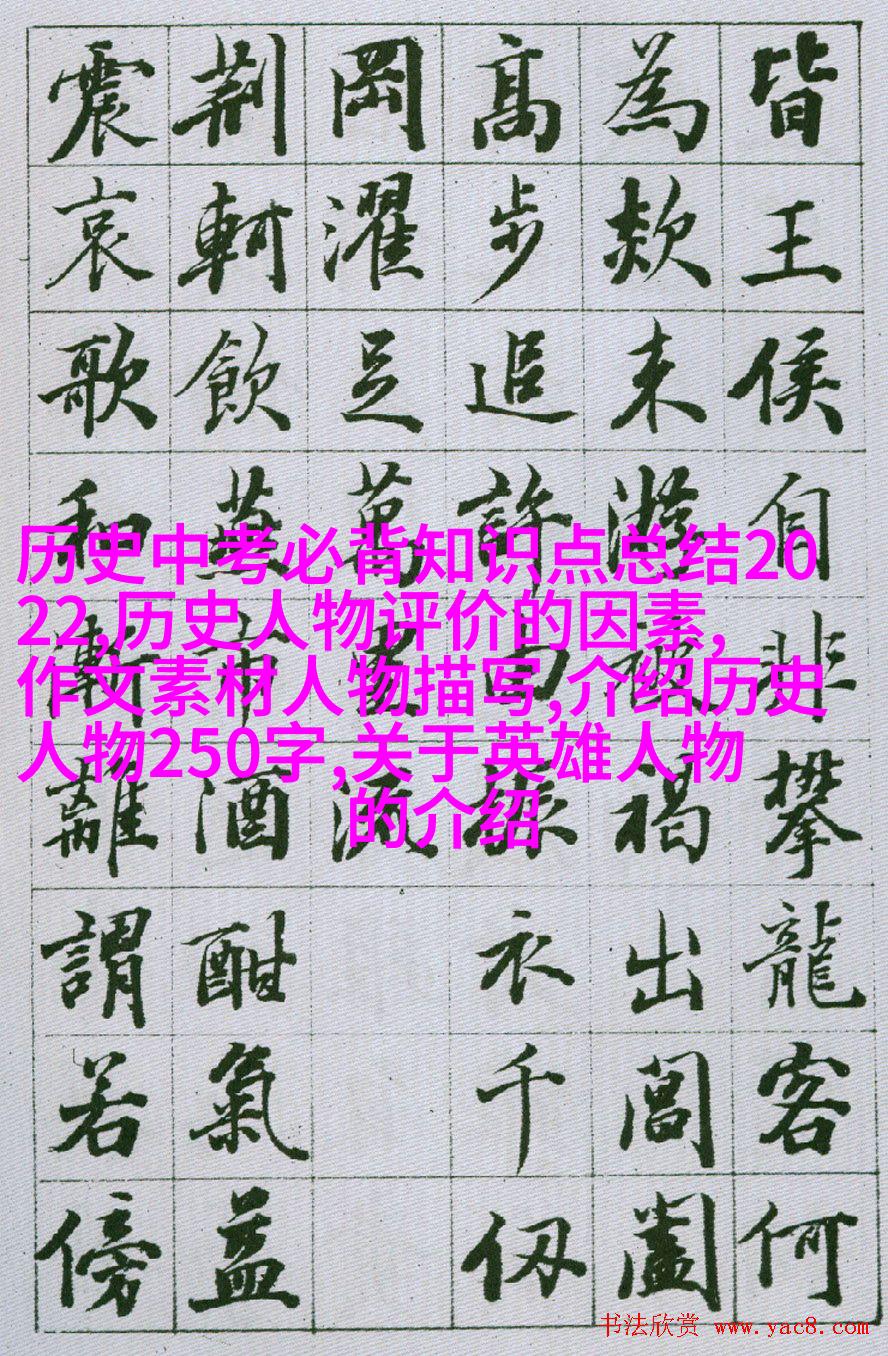 皆王侯自非攀龍客何
為欻来游被褐出閶闔
高步追許由振衣千仞
岡濯足萬里流
荊軻飲燕市酒酣氣益
震哀歌和漸離謂若傍
历史中考必背知识点总结20
22,历史人物评价的因素,
作文素材人物描写,介绍历史
人物250字,关于英雄人物
的介绍
书法欣赏 www.yac8.com